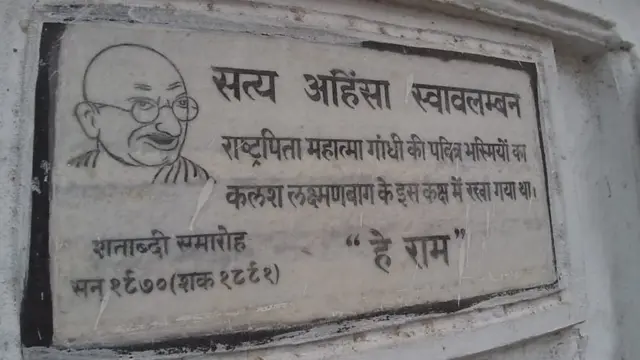 सत्य अहिंसा स्वावलम्बन
राष्ट्रपिता महात्मा गांधी की पवित्र भस्मियों का
कलश लक्ष्मणबाग के इस कक्ष में रखा गया था।
शताब्दी समारोह
सन १९७०(शक १८९१)
“हे राम”